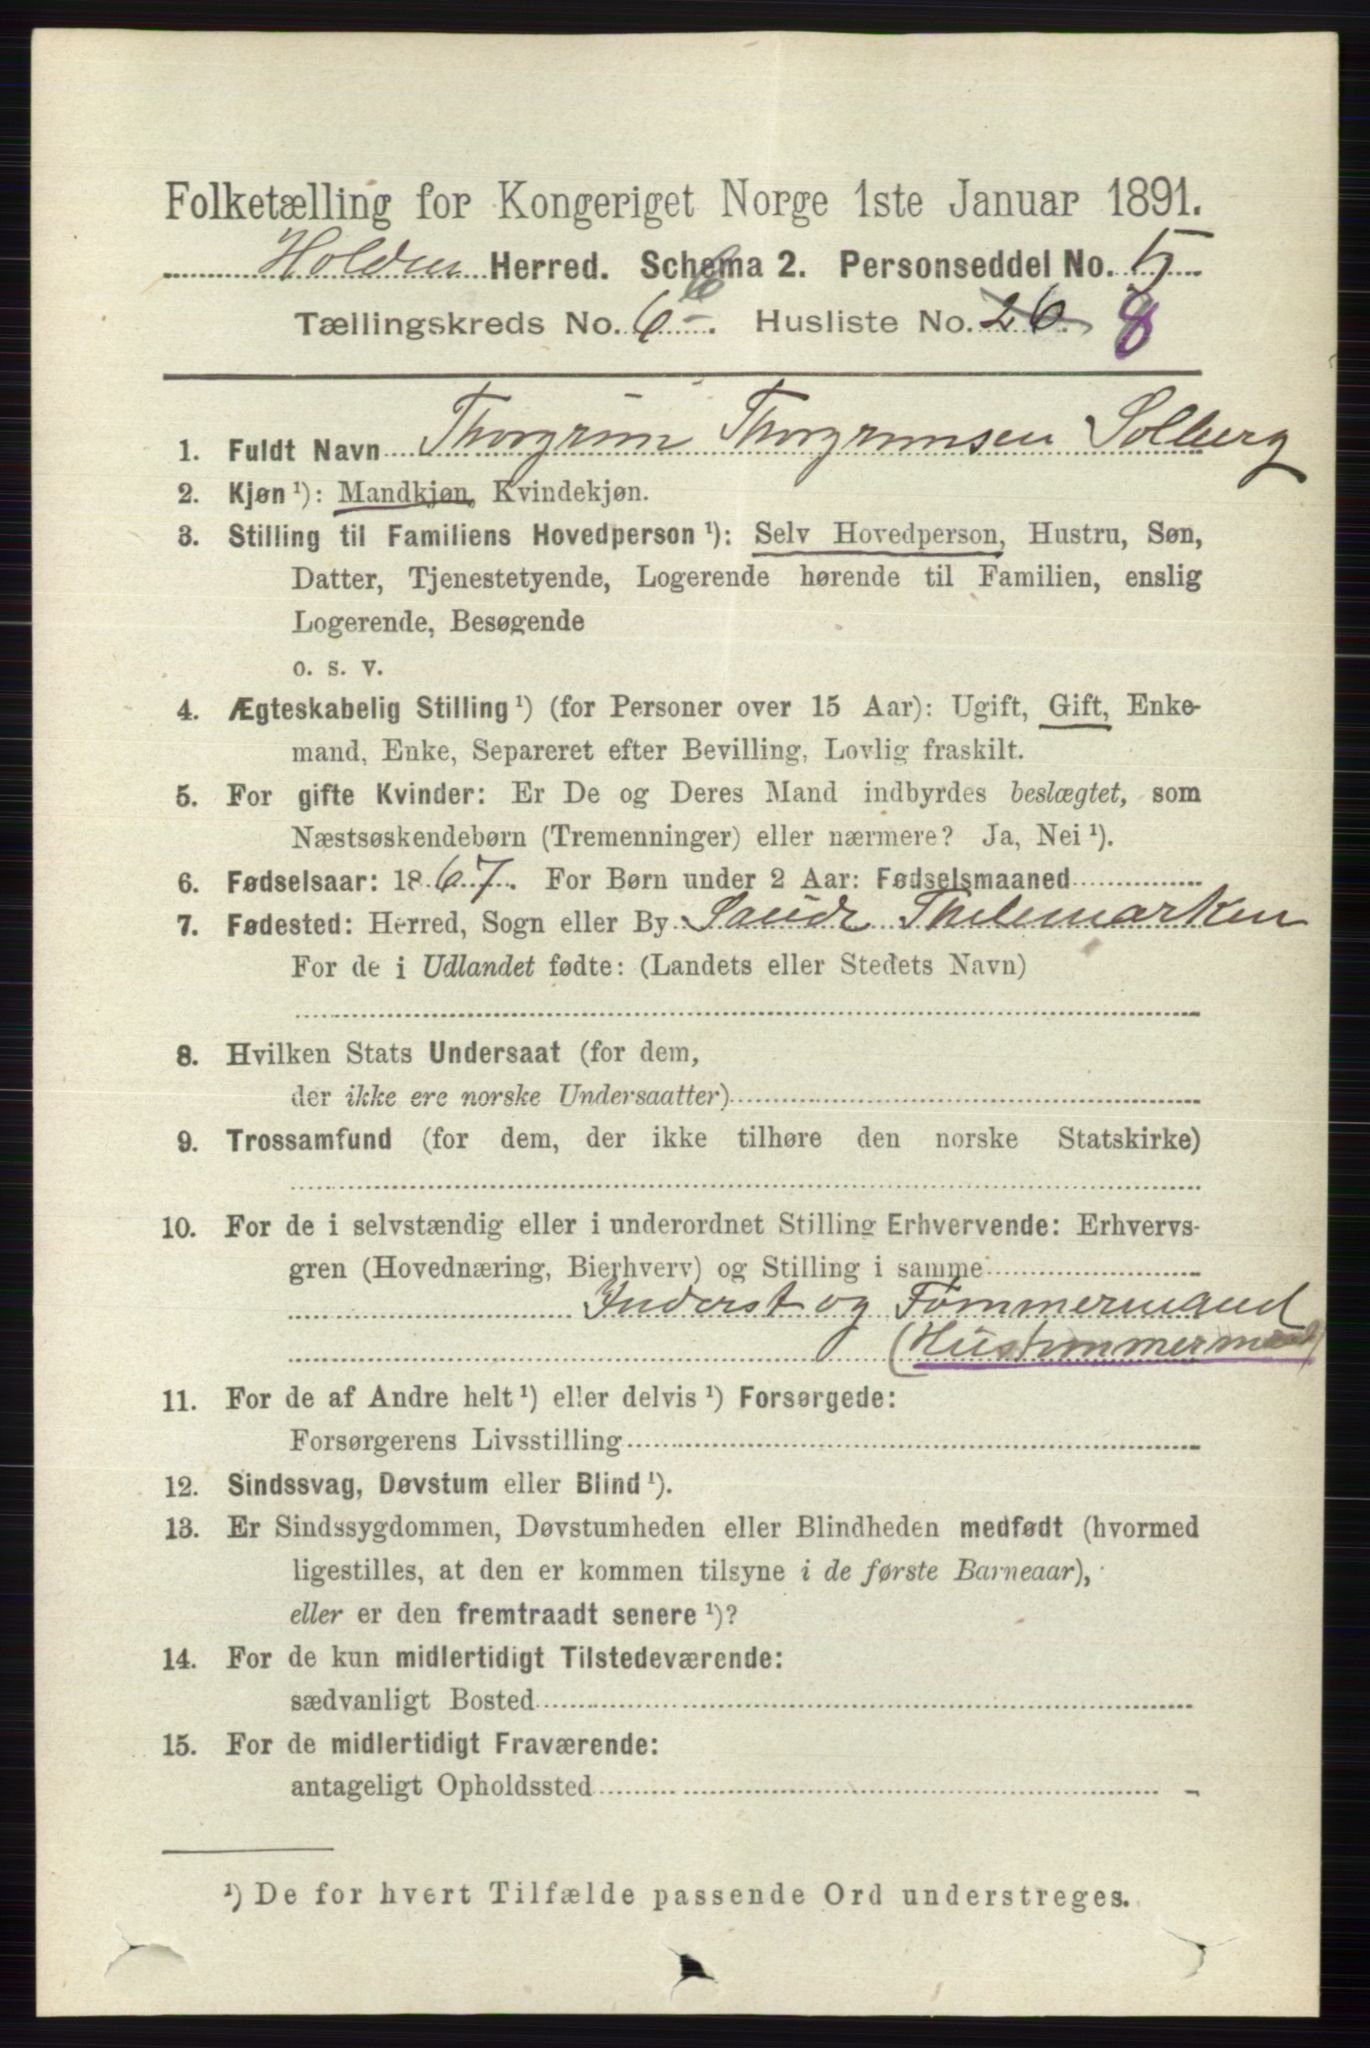 Folketælling for Kongeriget Norge 1ste Januar 1891.
Holden Herred. Schema 2. Personseddel No. 5
Tællingskreds No. 6 b. Husliste No. 26. 8
1. Fuldt Navn Thorgrim Thorgrimsen Solberg
2. Kjøn ¹): Mandkjøn, Kvindekjøn.
3. Stilling til Familiens Hovedperson ¹): Selv Hovedperson, Hustru, Søn,
Datter, Tjenestetyende, Logerende hørende til Familien, enslig
Logerende, Besøgende
o. s. v.
4. Ægteskabelig Stilling ¹) (for Personer over 15 Aar): Ugift, Gift, Enke-
mand, Enke, Separeret efter Bevilling, Lovlig fraskilt.
5. For gifte Kvinder: Er De og Deres Mand indbyrdes beslægtet, som
Næstsøskendebørn (Tremenninger) eller nærmere? Ja, Nei ¹).
6. Fødselsaar: 1867. For Børn under 2 Aar: Fødselsmaaned
7. Fødested: Herred, Sogn eller By Saude Thelemarken
For de i Udlandet fødte: (Landets eller Stedets Navn)
8. Hvilken Stats Undersaat (for dem,
der ikke ere norske Undersaatter)
9. Trossamfund (for dem, der ikke tilhøre den norske Statskirke)
10. For de i selvstændig eller i underordnet Stilling Erhvervende: Erhvervs-
gren (Hovednæring, Bierhverv) og Stilling i samme
Inderst og Tømmermand
(Hustømmermand)
11. For de af Andre helt ¹) eller delvis ¹) Forsørgede:
Forsørgerens Livsstilling
12. Sindssvag, Døvstum eller Blind ¹).
13. Er Sindssygdommen, Døvstumheden eller Blindheden medfødt (hvormed
ligestilles, at den er kommen tilsyne i de første Barneaar),
eller er den fremtraadt senere ¹)?
14. For de kun midlertidigt Tilstedeværende:
sædvanligt Bosted
15. For de midlertidigt Fraværende:
antageligt Opholdssted
¹) De for hvert Tilfælde passende Ord understreges.